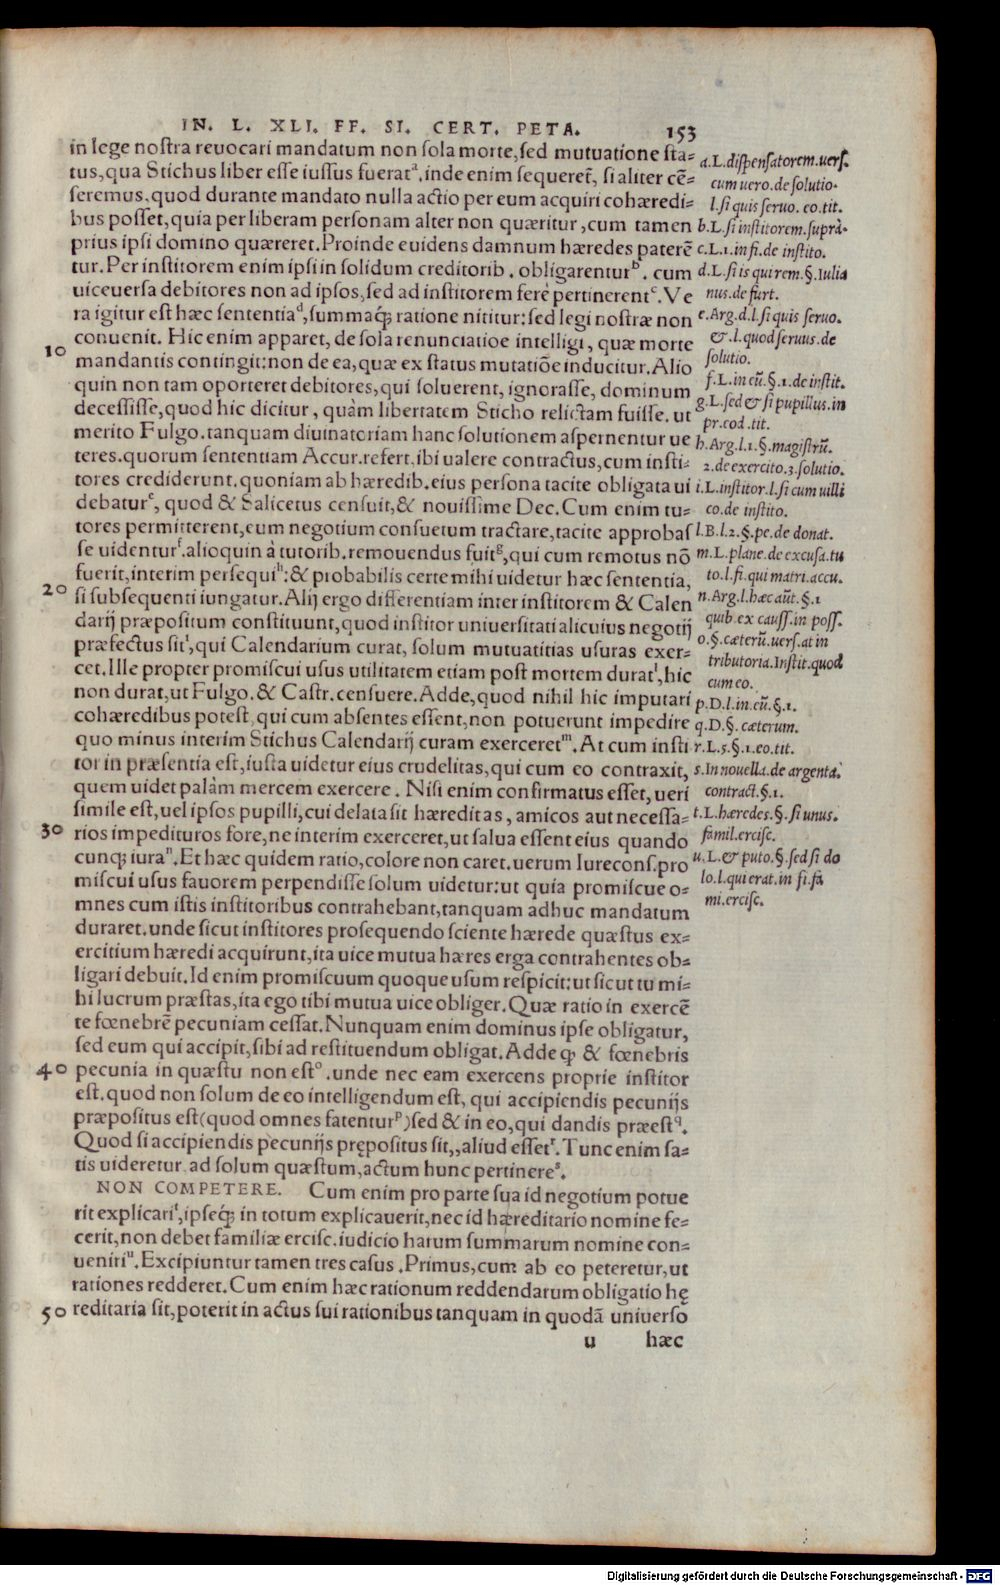 IN. L. XLI. FF. SI. CERT. PETA. 153
in lege nostra reuocari mandatum non sola morte, sed mutuatione sta-
tus, qua Stichus liber esse iussus fuerat a. inde enim sequeret̃, si aliter cẽ-
seremus, quod durante mandato nulla actio per eum acquiri cohæredi-
bus posset, quia per liberam personam alter non quæritur, cum tamen
prius ipsi domino quæreret. Proinde euidens damnum hæredes paterẽ
tur. Per institorem enim ipsi in solidum creditorib. obligarentur b. cum
uiceuersa debitores non ad ipsos, sed ad institorem ferè pertinerent c. Ve
ra igitur est hæc sententia d, summaq́; ratione nititur: sed legi nostræ non
conuenit. Hic enim apparet, de sola renunciatiõe intelligi, quæ morte
10 mandantis contingit: non de ea, quæ ex status mutatiõe inducitur. Alio
quin non tam oporteret debitores, qui soluerent, ignorasse, dominum
decessisse, quod hic dicitur, quàm libertatem Sticho relictam fuisse. ut
merito Fulgo. tanquam diuinatoriam hanc solutionem aspernentur ue
teres. quorum sententiam Accur. refert, ibi ualere contractus, cum insti-
tores crediderunt. quoniam ab hæredib. eius persona tacite obligata ui
debatur e, quod & Salicetus censuit, & nouissime Dec. Cum enim tu-
tores permitterent, eum negotium consuetum tractare, tacite approbas
se uidentur f. alioquin à tutorib. remouendus fuit g, qui cum remotus nõ
fuerit, interim persequi h: & probabilis certe mihi uidetur hæc sententia,
20 si subsequenti iungatur. Alij ergo differentiam inter institorem & Calen
darij præpositum constituunt, quod institor uniuersitati alicuius negotij
præfectus sit i, qui Calendarium curat, solum mutuatitias usuras exer-
cet. Ille propter promiscui usus utilitatem etiam post mortem durat l, hic
non durat, ut Fulgo. & Castr. censuere. Adde, quod nihil hic imputari
cohæredibus potest, qui cum absentes essent, non potuerunt impedire
quo minus interim Stichus Calendarij curam exerceret m. At cum insti
tor in præsentia est, iusta uidetur eius crudelitas, qui cum eo contraxit,
quem uidet palàm mercem exercere. Nisi enim confirmatus esset, ueri
simile est, uel ipsos pupilli, cui delata sit hæreditas, amicos aut necessa-
30 rios impedituros fore, ne interim exerceret, ut salua essent eius quando
cunq; iura n. Et hæc quidem ratio, colore non caret. uerum Iurecons. pro
miscui usus fauorem perpendisse solum uidetur: ut quia promiscue o-
mnes cum istis institoribus contrahebant, tanquam adhuc mandatum
duraret. unde sicut institores prosequendo sciente hærede quæstus ex-
ercitium hæredi acquirunt, ita uice mutua hæres erga contrahentes ob-
ligari debuit. Id enim promiscuum quoque usum respicit: ut sicut tu mi-
hi lucrum præstas, ita ego tibi mutua uice obliger. Quæ ratio in exercẽ
te fœnebrẽ pecuniam cessat. Nunquam enim dominus ipse obligatur,
sed eum qui accipit, sibi ad restituendum obligat. Adde ꝙ & fœnebris
40 pecunia in quæstu non est o. unde nec eam exercens proprie institor
est. quod non solum de eo intelligendum est, qui accipiendis pecunijs
præpositus est (quod omnes fatentur p) sed & in eo, qui dandis præest q.
Quod si accipiendis pecunijs prępositus sit,, aliud esset r. Tunc enim sa-
tis uideretur ad solum quæstum, actum hunc pertinere s.
NON COMPETERE. Cum enim pro parte sua id negotium potue
rit explicari t, ipseq́; in totum explicauerit, nec id hæreditario nomine fe-
cerit, non debet familiæ ercisc. iudicio harum summarum nomine con-
ueniri u. Excipiuntur tamen tres casus. Primus, cum ab eo peteretur, ut
rationes redderet. Cum enim hæc rationum reddendarum obligatio hę
50 reditaria sit, poterit in actus sui rationibus tanquam in quodã uniuerso
u hæc
a. L. dispensatorem. uers.
cum uero. de solutio.
l. si quis seruo. eo. tit.
b. L. si institorem. suprà.
c. L. 1. in fi. de instito.
d. L. si is qui rem. §. Iulia
nus. de furt.
e. Arg. d. l. si quis seruo.
& l. quod seruus. de
solutio.
f. L. in eũ. §. 1. de instit.
g. L. sed & si pupillus. in
pr. eod. tit.
h. Arg. l. 1. §. magistrũ.
2. de exercito. 3. solutio.
i. L. institor. l. si cum uilli
co. de instito.
l. B. l. 2. §. pe. de donat.
m. L. plane. de excusa. tu
to. l. fi. qui matri. accu.
n. Arg. l. hæc aũt. §. 1
quib. ex causs. in poss.
o. §. cæterũ. uers. at in
tributoria. Instit. quod
cum eo.
p. D. l. in eũ. §. 1.
q. D. §. cæterum.
r. L. 5. §. 1. eo. tit.
s. In nouella. de argenta.
contract. §. 1.
t. L. hæredes. §. si unus.
famil. ercisc.
u. L. & puto. §. sed si do
lo. l. qui erat. in fi. fa
mi. ercisc.
Digitalisierung gefördert durch die Deutsche Forschungsgemeinschaft - DFG